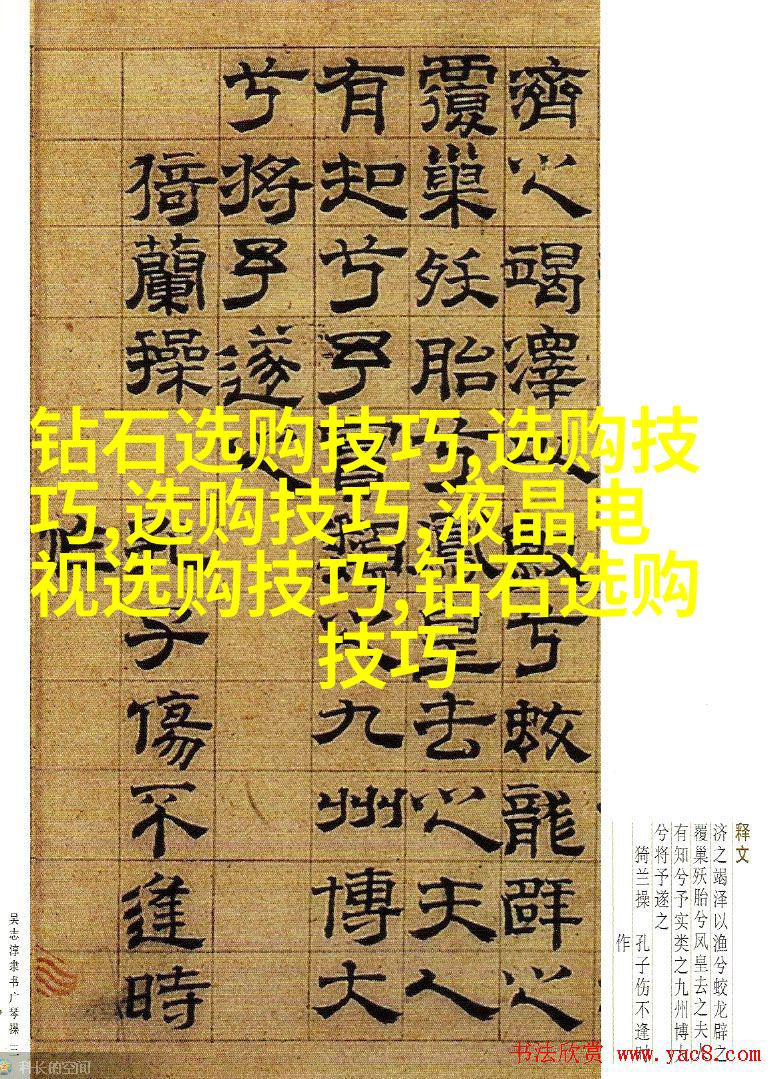 钻石选购技巧,选购技
巧,选购技巧,液晶电
视选购技巧,钻石选购
技巧
濟之竭澤兮蛟龍辟之
覆巢殀胎兮鳳皇去之夫人
有知兮予實之九州博大
兮將予遂之
猗蘭操 子傷不逢時
作
释文
济之竭泽以渔兮蛟龙辟之
覆巢殀胎兮凤皇去之夫
有知兮予实类之九州博
兮将予遂之
猗兰操 孔子伤不逢时
作
吴志淳隶书广琴操 三
科长的空间
书法欣赏 www.yac8.com